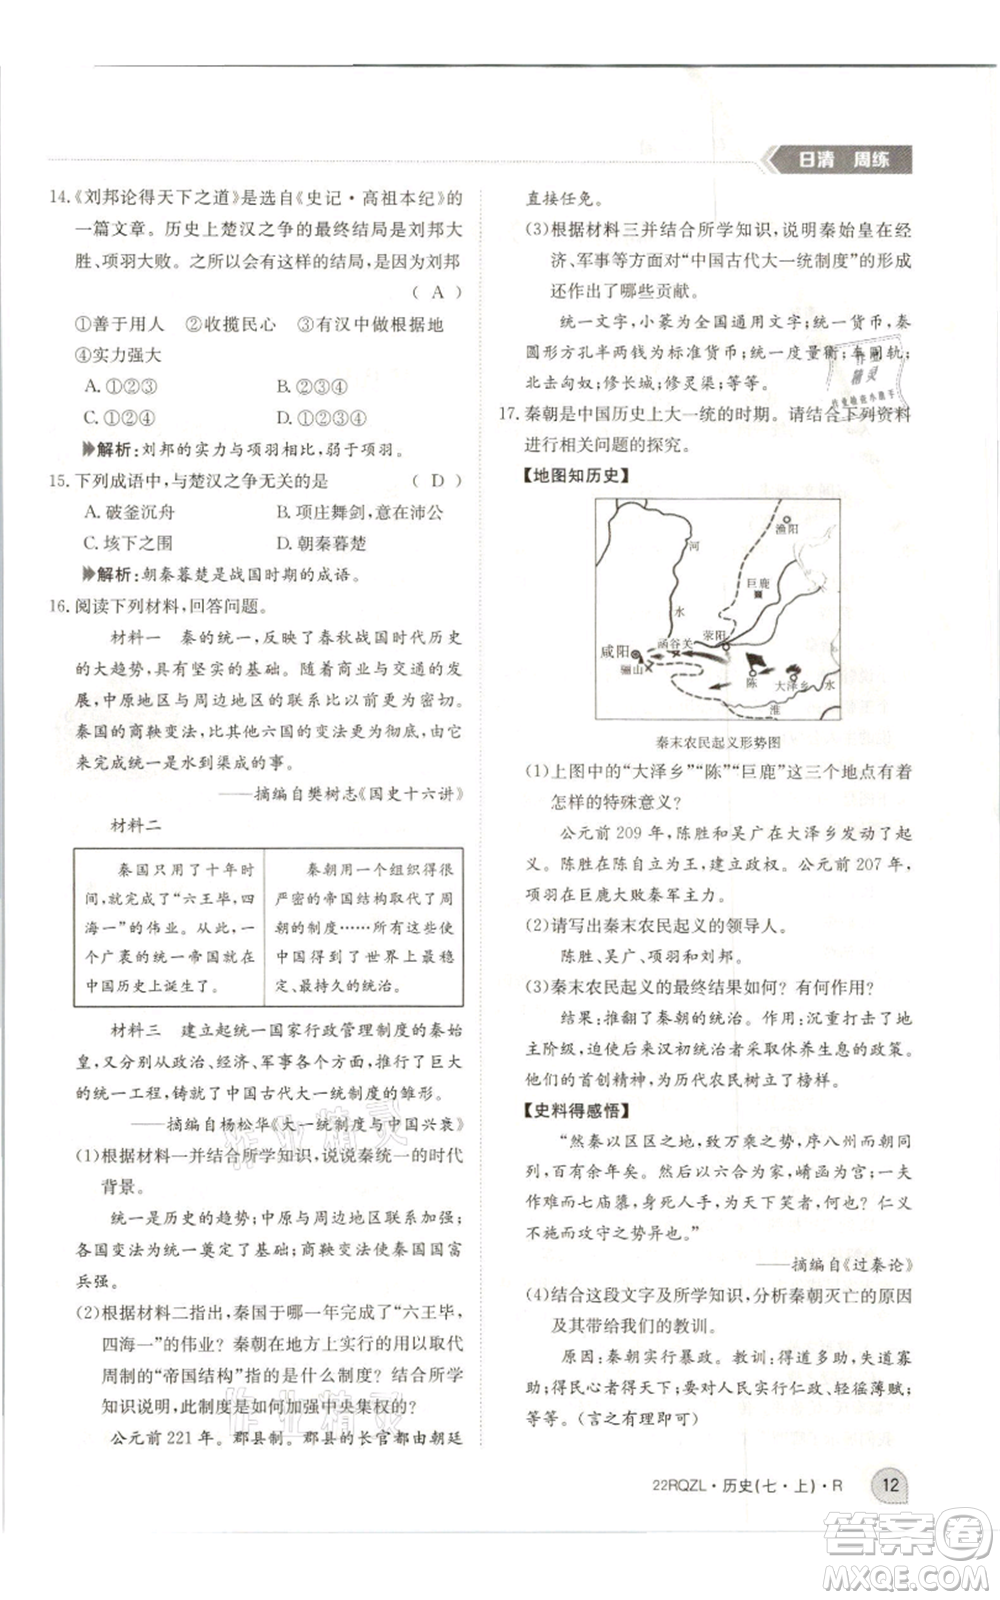 日清 周练
14.《刘邦论得天下之道》是选自《史记·高祖本纪》的
一篇文章。历史上楚汉之争的最终结局是刘邦大
胜、项羽大败。之所以会有这样的结局,是因为刘邦
( A )
①善于用人 ②收揽民心 ③有汉中做根据地
④实力强大
A. ①②③ B. ①③④
C. ①②④ D. ①②③④
解析:刘邦的实力与项羽相比,弱于项羽。
15. 下列成语中,与楚汉之争无关的是 ( D )
A. 破釜沉舟 B. 项庄舞剑,意在沛公
C. 垓下之围 D. 朝秦暮楚
解析:朝秦暮楚是战国时期的成语。
16. 阅读下列材料,回答问题。
材料一 秦的统一,反映了春秋战国时代历史
的大趋势,具有坚实的基础。随着商业与交通的发
展,中原地区与周边地区的联系日趋紧密。同时,
秦国的商鞅变法,比其他六国的变法更彻底,统一
的完成是水到渠成的事。
——摘编自樊树志《国史十六讲》
材料二
秦国只用了十年时
间,就完成了“六王毕,四
海一”的伟业。从此,一
个广袤的统一帝国就在
中国历史上诞生了。
秦朝用一个组织得很
严密的帝国结构取代了周
朝的制度……所有这些使
中国得到了世界上最稳
定、最持久的统治。
材料三 建立起统一国家行政管理制度的秦始
皇,又分别从政治、经济、军事等方面,推行了巨大
的统一工程,铸就了中国古代大一统制度的雏形。
——摘编自杨松华《大一统制度与中国兴衰》
(1)根据材料一并结合所学知识,说说秦统一的时代
背景。
统一是历史的趋势;中原与周边地区联系紧密;
各国变法为统一奠定了基础;商鞅变法使秦国国富
兵强。
(2)根据材料二指出,秦国于哪一年完成了“六王毕,
四海一”的伟业?秦朝在地方上实行的用以取代
周制的“帝国结构”指的是什么制度?结合所学
知识说明,此制度是如何加强中央集权的?
公元前 221 年。郡县制。郡县的长官都由朝廷
直接任免。
(3)根据材料三并结合所学知识,说明秦始皇在经
济、军事等方面对“中国古代大一统制度”的形成
还作出了哪些贡献。
统一文字,小篆为全国通用文字;统一货币,秦
圆形方孔半两钱为标准货币;统一度量衡;车同轨;
北击匈奴;修长城;修灵渠;等等。
17. 秦朝是中国历史上大一统的时期。请结合下列资料
进行相关问题的探究。
【地图知历史】
渔阳
河
巨鹿
水
函谷关
荥阳
咸阳
骊山
陈
大泽乡
水
淮
秦末农民起义形势图
(1)上图中的“大泽乡”“陈”“巨鹿”这三个地点有着
怎样的特殊意义?
公元前 209 年,陈胜和吴广在大泽乡发动了起
义。陈胜在陈自立为王,建立政权。公元前 207 年,
项羽在巨鹿大败秦军主力。
(2)请写出秦末农民起义的领导人。
陈胜、吴广、项羽和刘邦。
(3)秦末农民起义的最终结果如何?有何作用?
结果:推翻了秦朝的统治。作用:沉重打击了地
主阶级,迫使后来汉初统治者采取休养生息的政策。
他们的首创精神,为历代农民起义树立了榜样。
【史料得感悟】
“然秦以区区之地,致万乘之势,序八州而朝同
列,百有余年矣。然后以六合为家,崤函为宫;一夫
作难而七庙隳,身死人手,为天下笑者,何也?仁义
不施而攻守之势异也。”
——摘编自《过秦论》
(4)结合这段文字及所学知识,分析秦朝灭亡的原因
及其带给我们的教训。
原因:秦朝实行暴政。教训:得道多助,失道寡
助,得民心者得天下;统治者要施行仁政、轻徭薄赋;
等等。(言之有理即可)
22RQZL·历史(七·上)·R 12
作业精灵
作业精灵
作业
精灵
答案圈
MXQE.COM